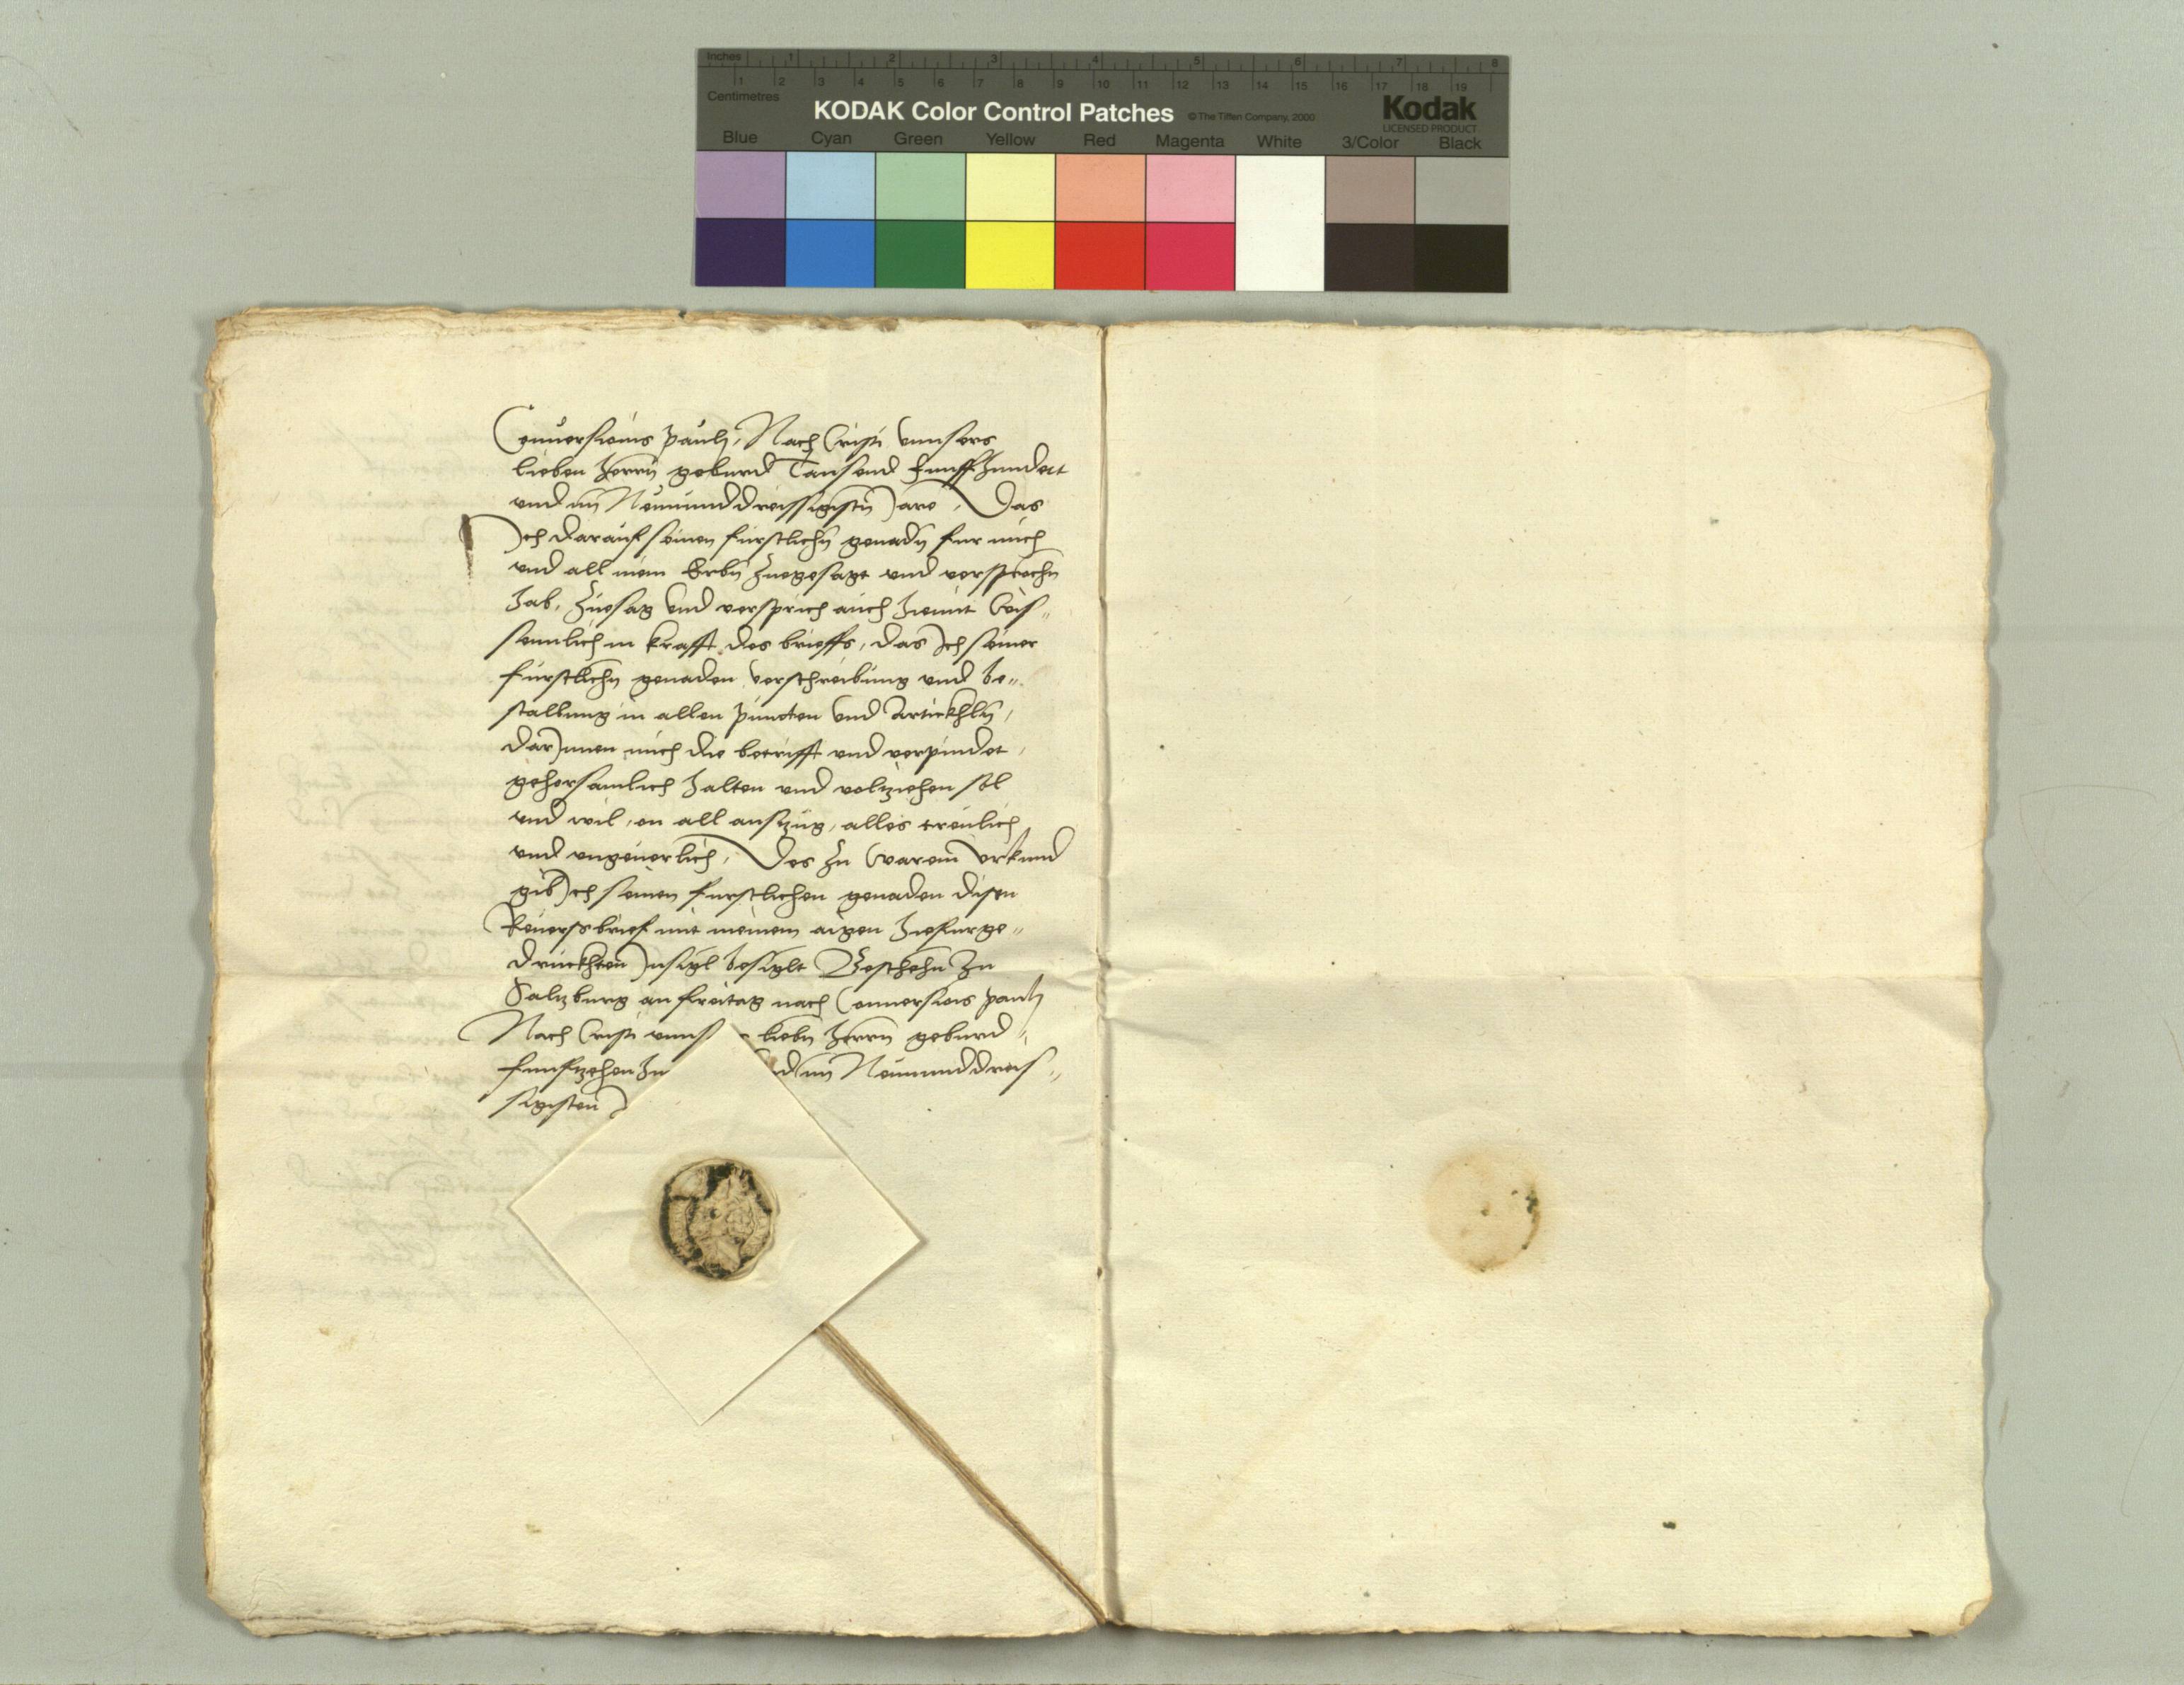 Inches 1 2 3 4 5 6 7 8
1 2 3 4 5 6 7 8 9 10 11 12 13 14 15 16 17 18 19
Centimetres
KODAK Color Control Patches © The Tiffen Company, 2000 Kodak
LICENSED PRODUCT
Blue Cyan Green Yellow Red Magenta White 3/Color Black
Conuersionis Pauli, Nach Cristi vnnsers
lieben Herrn geburd Tausend Funffhundert
vnd im Neununddreissigistn Jare, Das
Ich darauf seinen fürstlichn genadn fur mich
vnd all mein Erbn zuegesagt vnd versprochn
hab, Zuesag vnd versprich auch hiemit wis„
senntlich in krafft des brieffs, das Ich seiner
fürstlichn genaden verschreibung vnd be„
stallung in allen puncten vnd Artickhln,
darJnnen mich die betrifft vnd verpindet,
gehorsamlich halten vnd volziehen sol
vnd wil, on all auszüg, alles treulich
vnd vngeuerlich, Des zu warem vrkund
gib Ich seinen furstlichen genaden disen
Reuerssbrief mit meinem aigen hiefurge„
druckhten Insigl besiglt Geschehn zu
Saltzburg an Freitag nach Conuersionis Pauli
Nach Cristi vnns liebn Herrn geburd„
funfzehenhu d im Neununddreis„
sigisten J